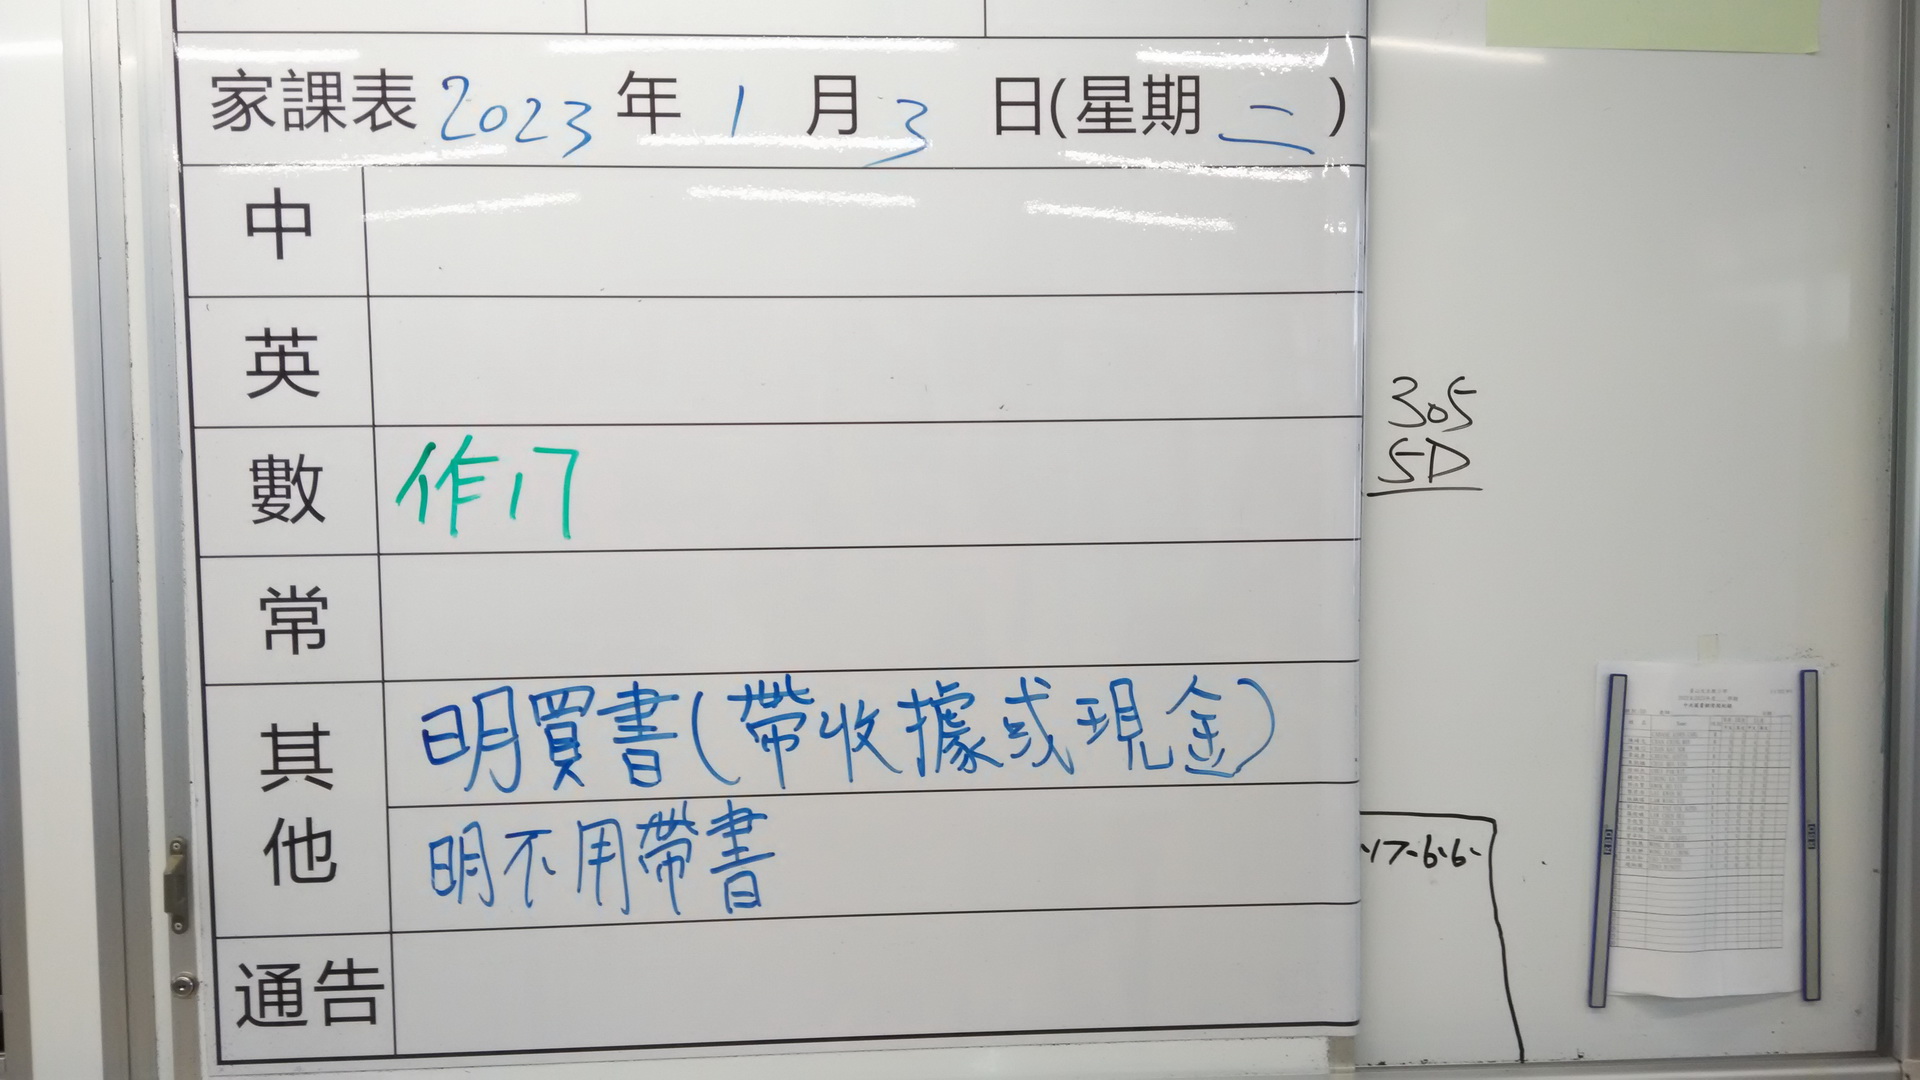 家課表 2023 年 1 月 3 日(星期 二 )
中
英
數 作17
常
其他 明買書(帶收據或現金)
明不用帶書
通告
305
5D
17-6-6-